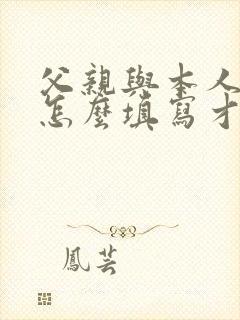 父親與本人
怎麼填寫才
鳳芸